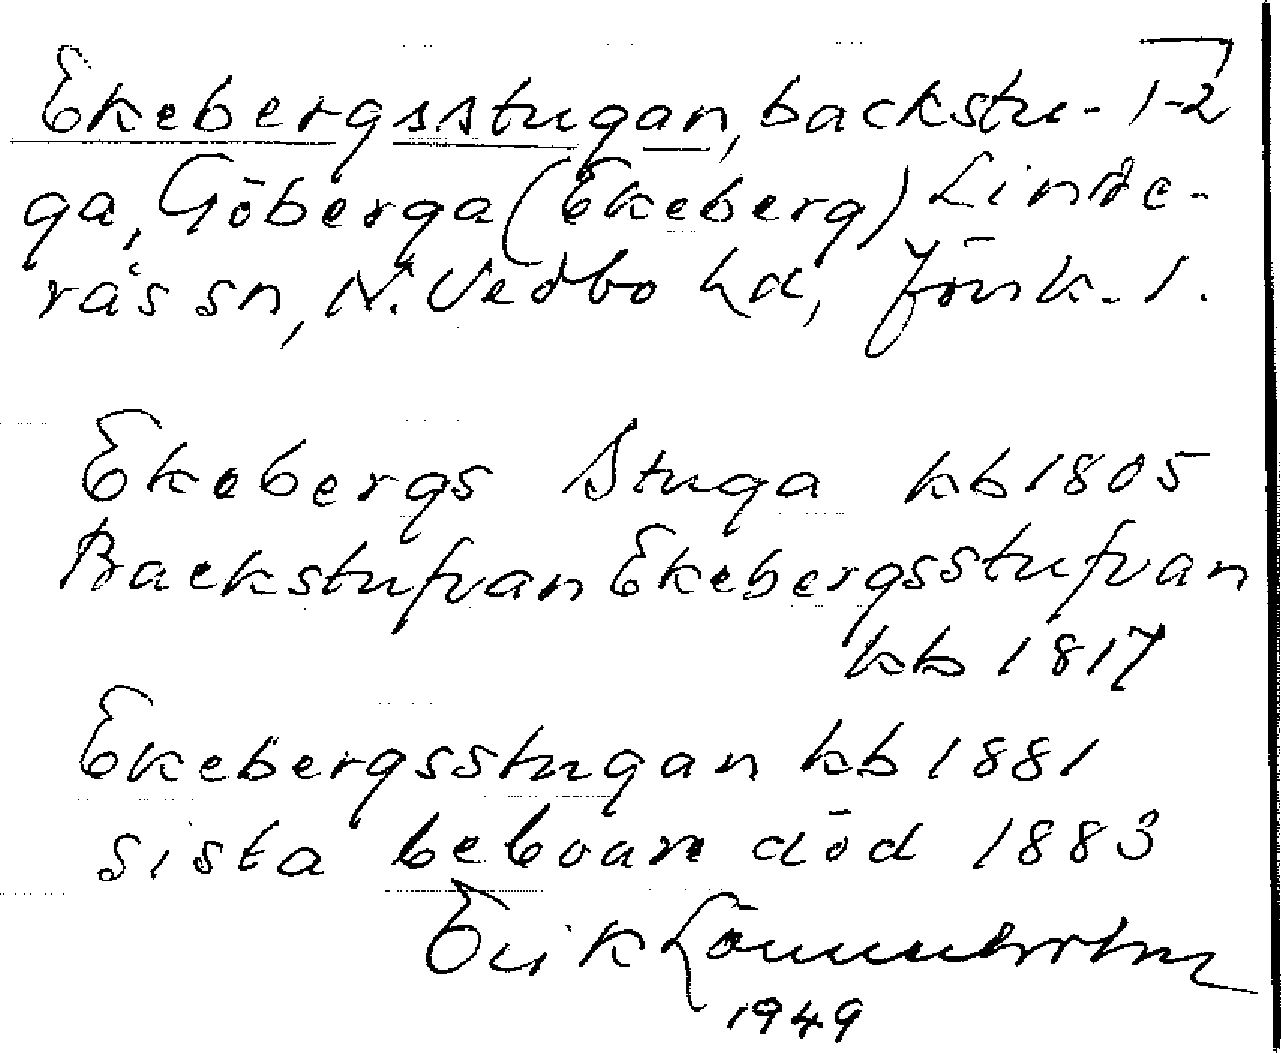 Ekebergsstugan, backstu- 1-2
ga, Göberga (Ekeberg) Linde-
rås sn, N. Vedbo hd, Jönk. l.
Ekebergs Stuga kb 1805
Backstufvan Ekebergsstufvan
kb 1817
Ekebergsstugan kb 1881
sista beboare död 1883
Erik Lönnerholm
1949